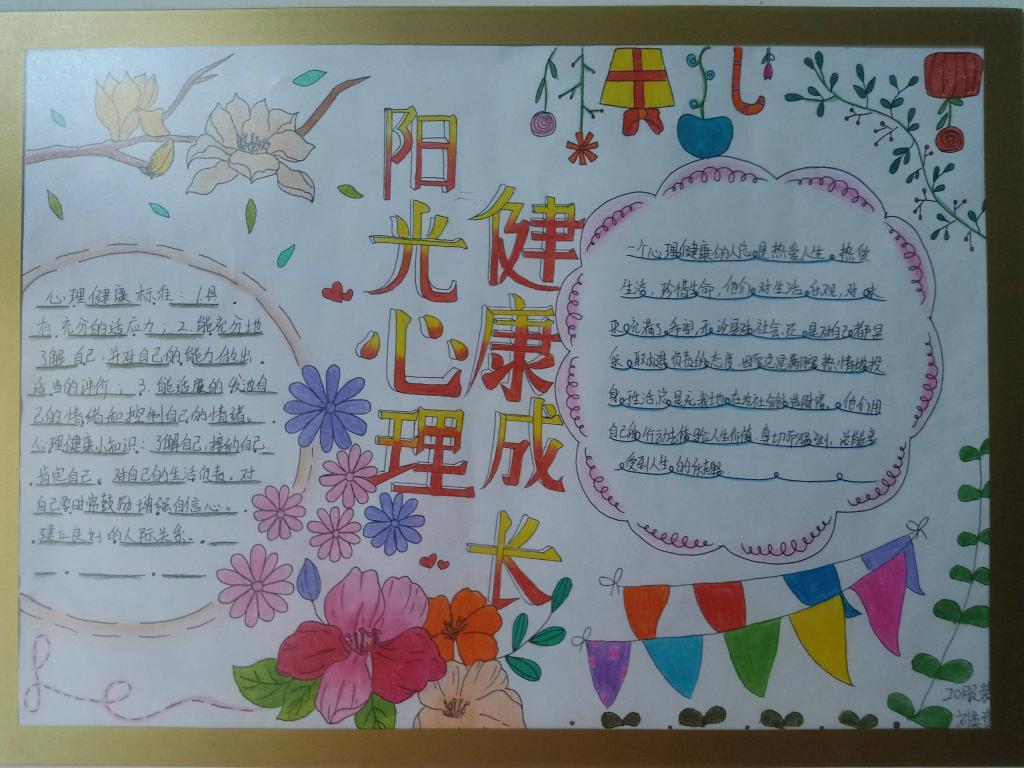 阳光心理
健康成长
心理健康标准：1.具
有充分的适应力；2.能充分地
了解自己，并对自己的能力做出
适当的评价；3.能适度的发泄自
己的情绪和控制自己的情绪。
心理健康小知识：了解自己，接纳自己，
肯定自己。对自己的生活负责。对
自己要时常鼓励增强自信心。
建立良好的人际关系。
一个心理健康的人总是热爱人生，热爱
生活，珍惜生命，他们对生活乐观，对未
来充满了希望，无论是对社会还是对自己都是
采取积极负责的态度，因而总是满腔热情地投
身于生活总是无私地在为社会创造财富。他们用
自己的行动去体验人生价值，享受
受到人生的乐趣
20服装